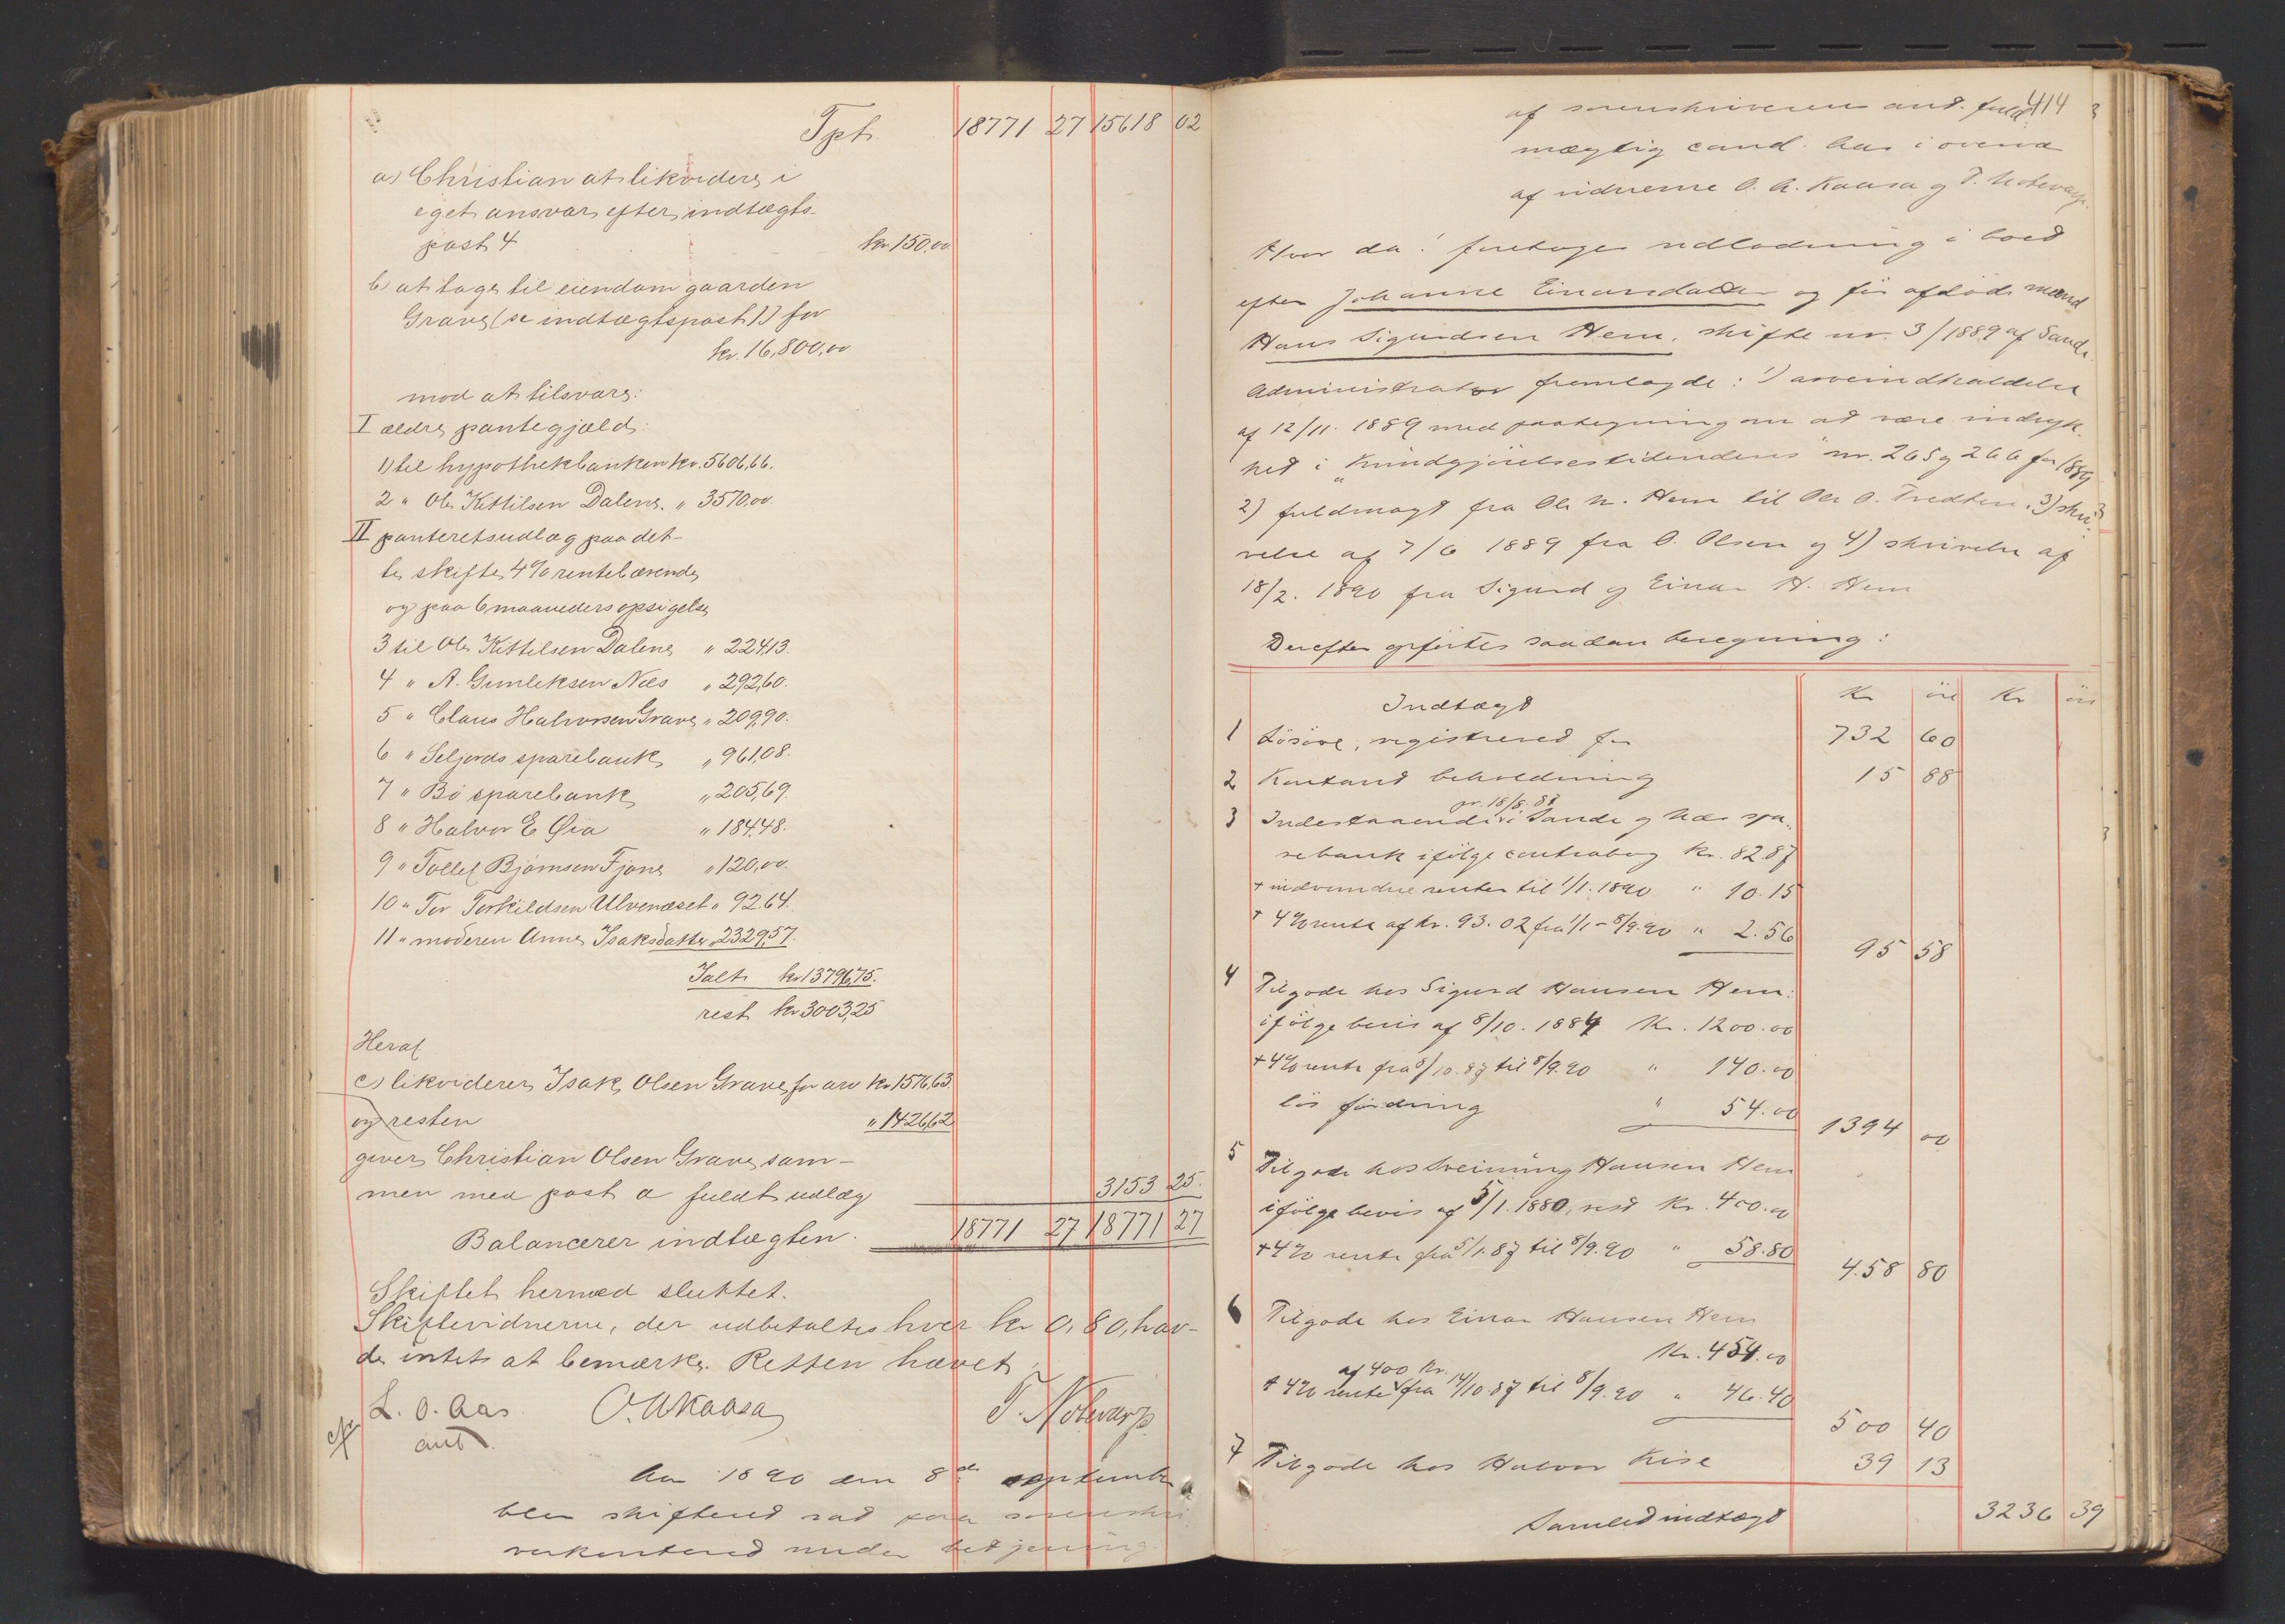 Tpt. 18771 27 15618 02
a) Christian at likvidere i
eget ansvar efter indtægts-
post 4 kr. 150,00
b) at tage til eiendom gaarden
Grave (se indtægtspost 1) for
kr. 16,800,00
mod at tilsvare:
I ældre pantegjæld:
1) til hypothekbanken kr. 5606,66.
2 " Ole Kittilsen Dalene. " 3570,00
II panteretsudlæg paa det-
te skifte 4% rentebærende
og paa 6 maaneders opsigelse
3 til Ole Kittilsen Dalene " 224,13.
4 " A. Gunleksen Næs " 292,60.
5 " Claus Halvorsen Grave " 209,90.
6 " Seljords sparebank " 961,08.
7 " Bø sparebank " 205,69.
8 " Halvor E Øia " 184,48.
9 " Tollef Bjørnsen Fjone " 120,00.
10 " Tor Torkildsen Ulvenæset " 92.64.
11 " moderen Anne Isaksdatter " 2329,57.
Ialt kr 13796,75.
rest kr 3003,25
Heraf
c) likviderer Isak Olsen Grave for arv kr 1576,63.
og resten " 1426,62
giver Christian Olsen Grave sam-
men med post a fuldt udlæg 3153 25.
Balancerer indtægten. 18771 27 18771 27
Skiftet hermed sluttet.
Skiftevidnerne, der udbetaltes hver kr 0,80, hav-
de intet at bemærke. Retten hævet
L. O. Aas O. A Kaasa T. Notevarp
aut.
Aar 1890 den 8de september
blev skifteret sat paa sorenskri
verkontoret under betjening
414
af sorenskriverens aut. fuld
mægtig cand. Aas i overvær
af vidnerne O. A. Kaasa og T. Notevarp.
Hvor da: foretoges udlodning i boet
efter Johanne Einarsdatter og før afdøde mand
Hans Sigurdsen Hem, skifte nr. 3/1889 af Sande.
Administrator fremlagde: 1) arveindkaldelse
af 12/11. 1889 med paategning om at være indryk-
ket i "Kundgjørelsestidendens" nr. 265 og 266 for 1889
2) fuldmagt fra Ole H. Hem til Ole O. Tredten, 3) skri-
velse af 7/6 1889 fra O. Olsen og 4) skrivelse af
18/2. 1890 fra Sigurd og Einar H. Hem
Derefter opførtes saadan beregning:
Indtægt Kr øre Kr øre
1 Løsøre, registreret for 732 60
2 Kontant beholdning 15 88
pr. 18/8. 87
3 Indestaaende i Sande og Næs spa-
rebank ifølge contrabog Kr. 82.87
+ indvundne renter til 1/1. 1890 " 10.15
+ 4% rente af kr. 93.02 fra 1/1 - 8/9.90 " 2.56
95 58
4 Tilgode hos Sigurd Hansen Hem:
ifølge bevis af 8/10. 1884 Kr. 1200.00
+ 4% rente fra 8/10.87 til 8/9.90 " 140.00
løs fordring " 54.00
1394 00
5 Tilgode hos Sveinung Hansen Hem
ifølge bevis af 5/1. 1880, rest Kr. 400.00
+ 4% rente fra 5/1.87 til 8/9.90 " 58.80
458 80
6 Tilgode hos Einar Hansen Hem
Kr. 454.00
af 400 Kr.
+ 4% rente fra 14/10.87 til 8/9.90 " 46.40
500 40
7 Tilgode hos Halvor Kise 39 13
Samled indtægt 3236 39